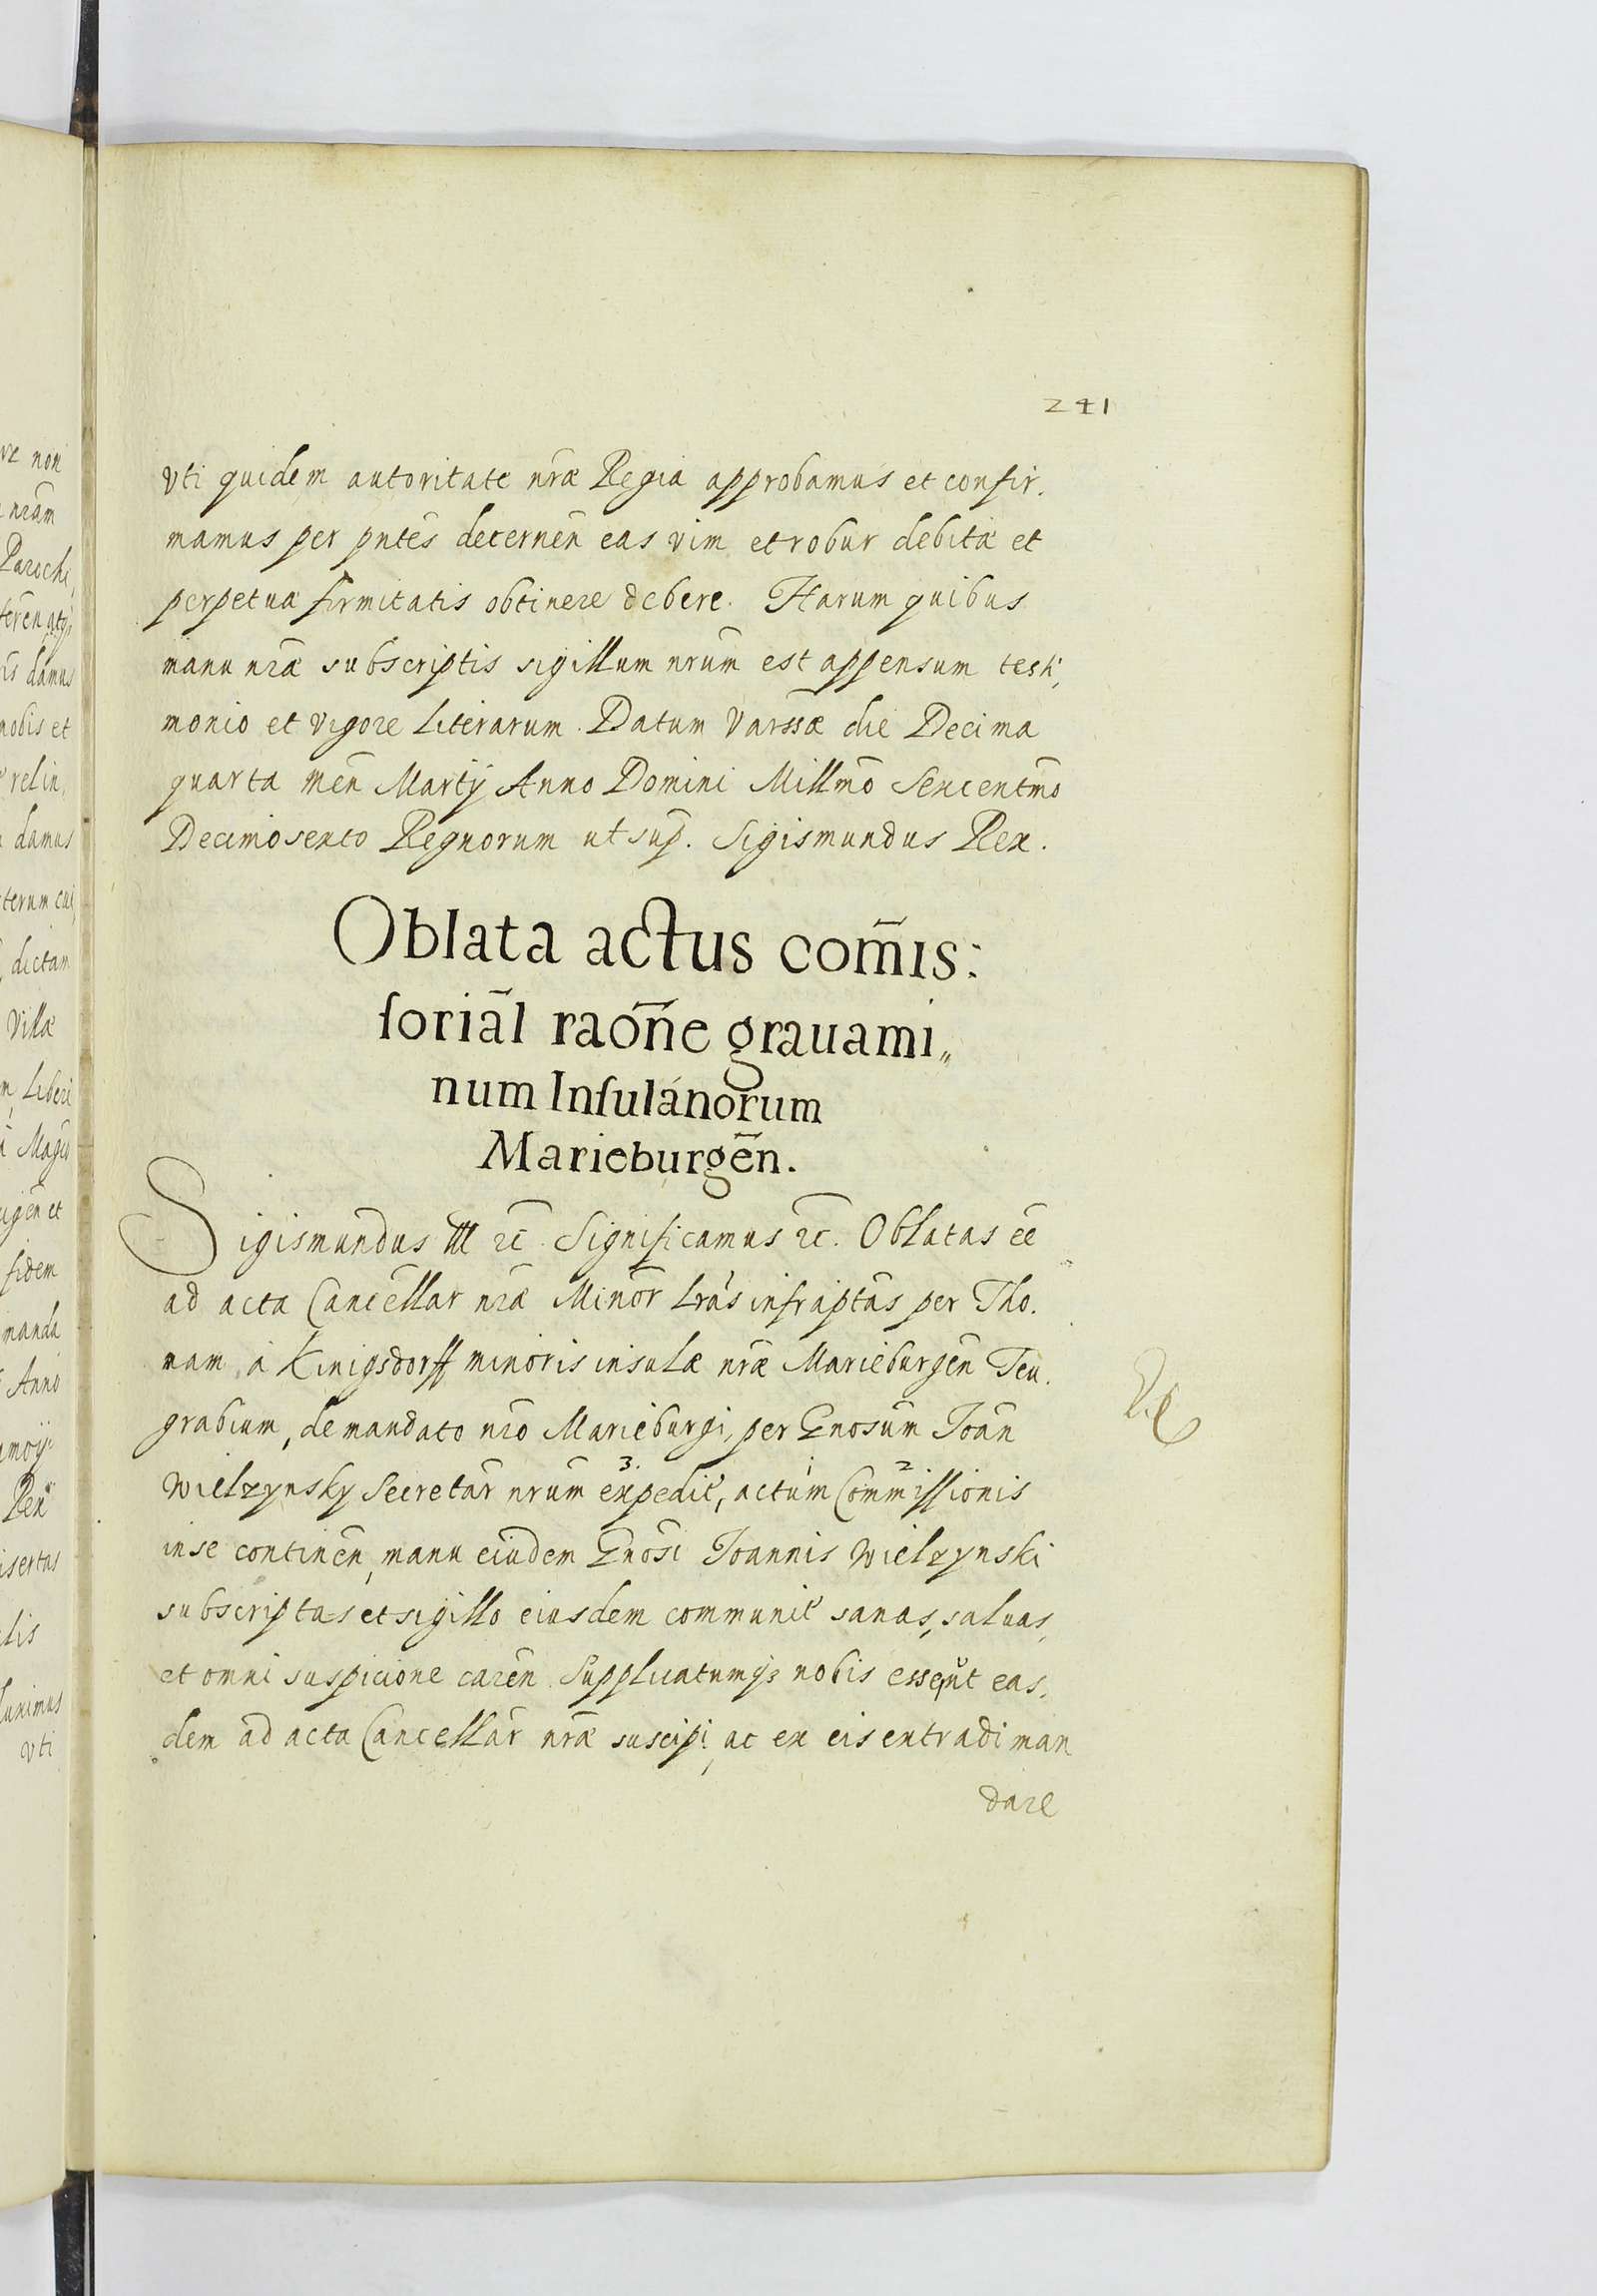 241
vti quidem autoritate nr̃æ Regia approbamus et confir,
mamus per pñtes decerneñ eas vim et robur debitæ et
perpetuæ firmitatis obtinere debere. Harum quibus
manu nr̃a subscriptis sigillum nrũm est appensum testi,
monio et vigore Literarum. Datum Varssæ die Decima
quarta meñ Martÿ Anno Domini Millm̃o Sexcentm̃o
Decimosexto Regnorum ut sup̃. Sigismundus Rex.
Oblata actus com̃is:
sorial̃ raoñe grauami„
num Insulánorum
Marieburgeñ.
Sigismundus III ꝛc̃. Significamus ꝛc̃. Oblatas eẽ
ad acta Cancellar̃ nr̃æ Minor̃ Lrãs infraptãs per Tho.
mam à Kinigsdorff minoris insulæ nr̃æ Marieburgeñ Teu.
grabium, de mandato nr̃o Marieburgi, per Gnosũm Ioañ
Wielzynsky Secretar̃ nrũm 3. expedit̃, 1 actum 2 Commissionis
in se contineñ, manu eiusdem Gnosĩ Ioannis Wielzynski
subscriptas et sigillo eiusdem communit̃ sanas, saluas,
et omni suspicione careñ. Supplicatumqꝫ nobis esse, ut eas,
dem ad acta Cancellar̃ nr̃æ suscipi, ac ex eis extradi man
dare
ve non
nrãm
Parochi,
is damus
nobis et
relin,
damus
terum cui,
dictam
Villæ
Liberi
et
fidem
manda
Anno
Rex
lis
vti